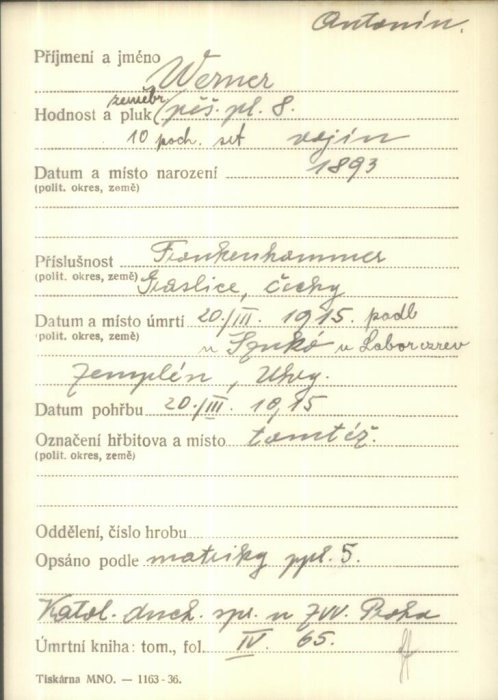 Antonín.
Příjmení a jméno Werner
Hodnost a pluk zeměbr. pěš. pl. 8.
10 poch. set vojín
Datum a místo narození 1893
(polit. okres, země)
Příslušnost Frankenhammer
(polit. okres, země) Graslice, Čechy
Datum a místo úmrtí 20./III. 1915. padl
(polit. okres, země) u Szukó u Laborczrev
Zemplén, Uhry.
Datum pohřbu 20./III. 1915
Označení hřbitova a místo tamtéž.
(polit. okres, země)
Oddělení, číslo hrobu
Opsáno podle matriky ppl. 5.
Katol. duch. spr. u ZVV. Praha
Úmrtní kniha: tom., fol. IV. 65.
Tiskárna MNO. — 1163-36.